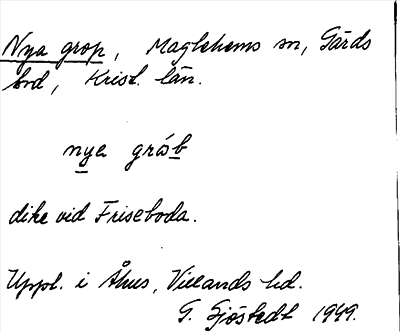 Nya grop, Maglehems sn, Gärds
hd, Krist. län.
nya gråb
dike vid Friseboda.
Uppt. i Åhus, Villands hd.
G. Sjöstedt 1949.